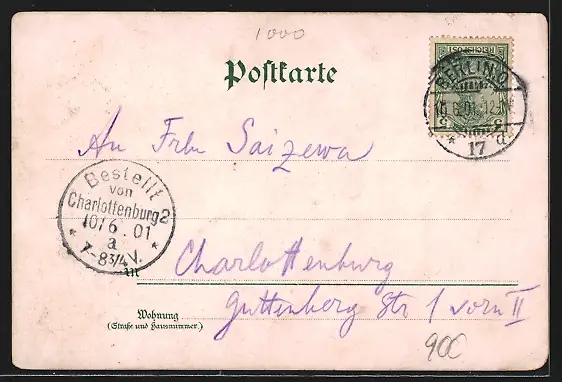 1000
Postkarte
REICHSPOST
BERLIN.O.
6.01. 12-
17 d
An Frln Saizewa
Bestellt
von
Charlottenburg 2
10/6.01
a
* 7-8 3/4 V. *
An
Charlottenburg
Guttenberg Str 1 vorn II
Wohnung
(Straße und Hausnummer.)
900